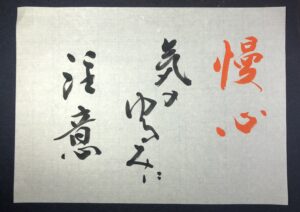 慢心
気のゆるみに
注意